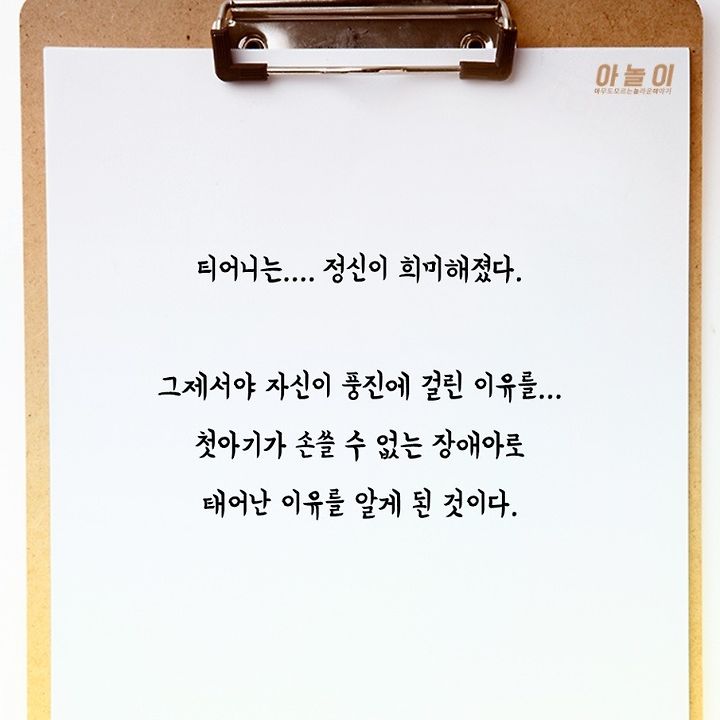 아놀이
아무도모르는놀라운이야기
티어니는.... 정신이 희미해졌다.
그제서야 자신이 풍진에 걸린 이유를...
첫아기가 손쓸 수 없는 장애아로
태어난 이유를 알게 된 것이다.